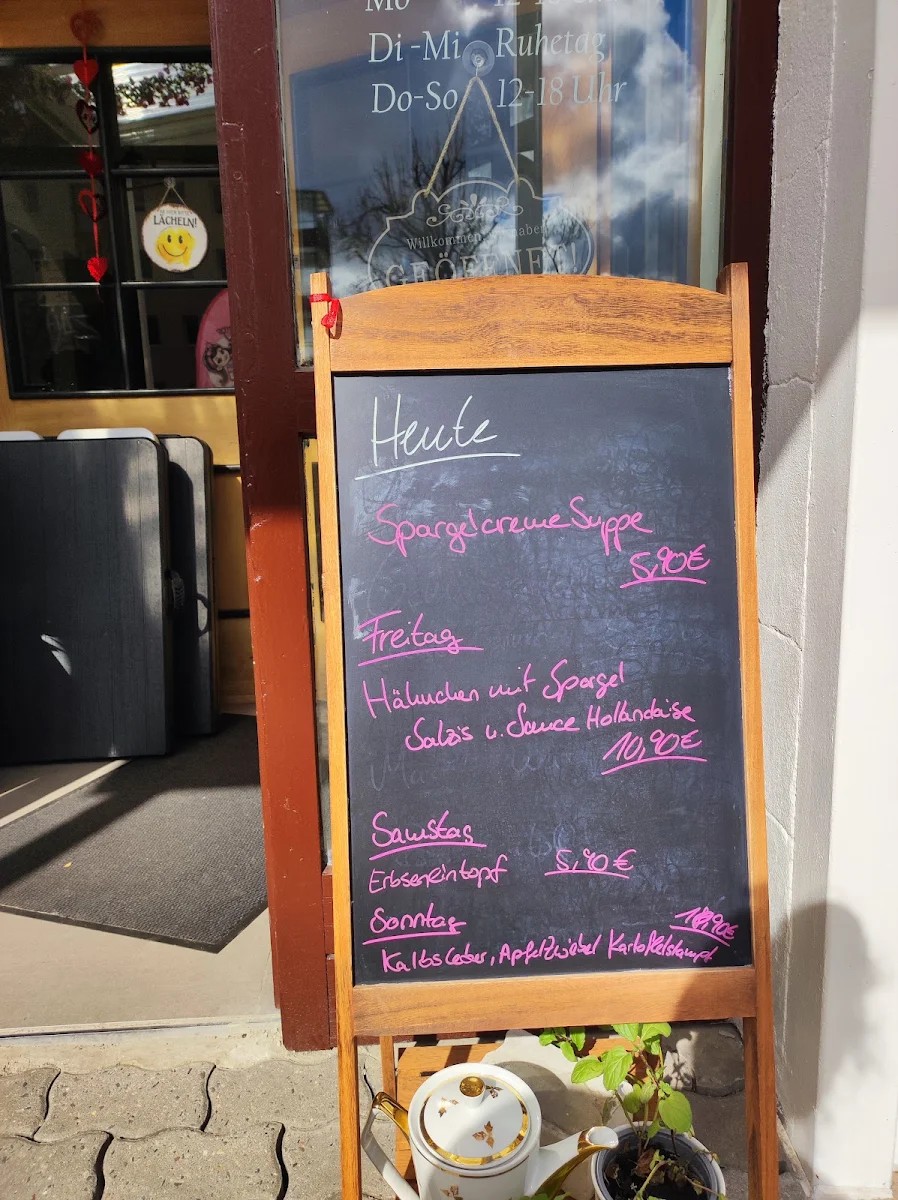 Mo 12-18 Uhr
Di-Mi Ruhetag
Do-So 12-18 Uhr
LÄCHELN!
Willkommen
GEÖFFNET
Heute
Spargelcreme Suppe
5,90€
Freitag
Hähnchen mit Spargel
Salzis u. Sauce Hollandaise
10,90€
Samstag
Erbseneintopf 5,90€
Sonntag
Kalbsleber, Apfelzwiebel Kartoffelstampf